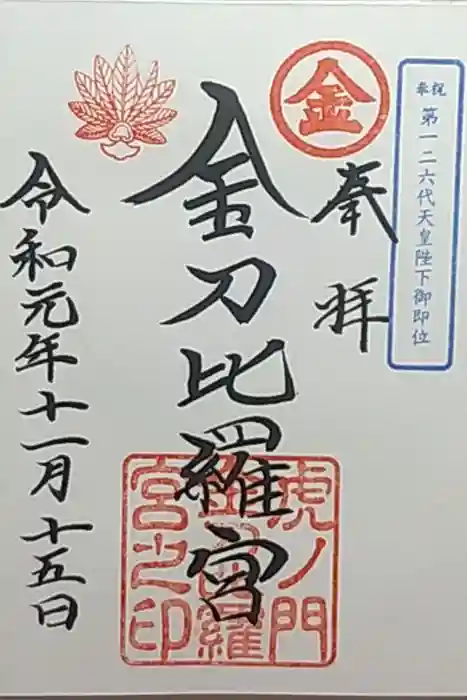 奉祝 第一二六代天皇陛下御即位
金
奉拝
金刀比羅宮
虎ノ門
金刀比羅
宮之印
令和元年十一月十五日